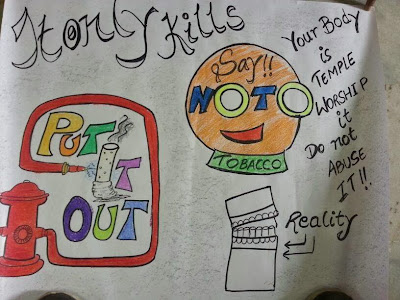 It only Kills
Say!!
NO TO
TOBACCO
YOUR BODY
is
TEMPLE
WORSHIP
it
DO not
ABUSE
IT!!
PUT
IT
OUT
Reality